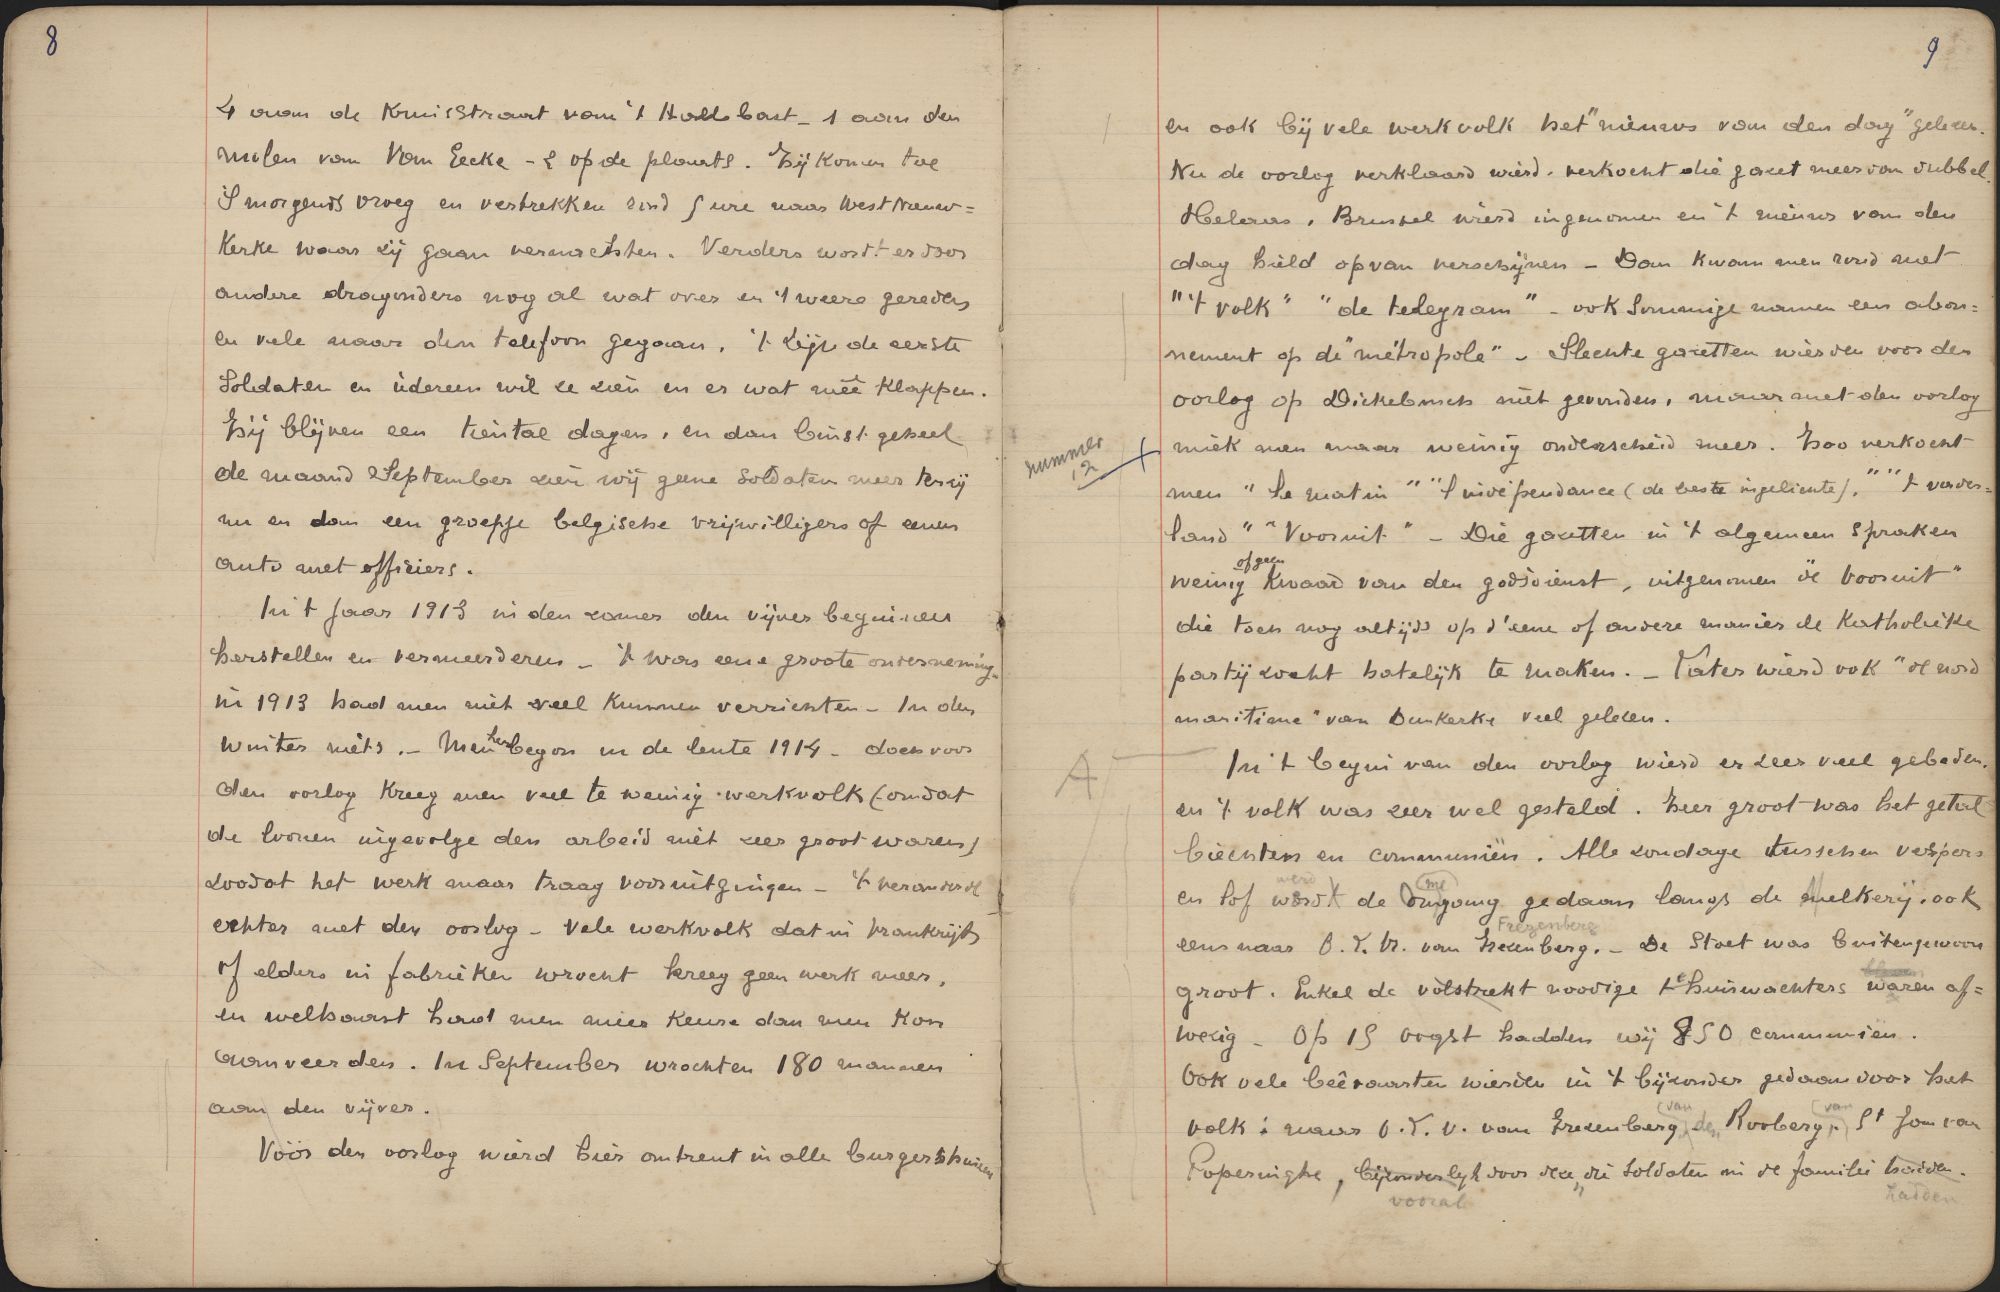 8
4 aan de Kruisstraat van 't Hallebast - 1 aan den
molen van Van Eecke - 2 op de plaats. Zij komen toe
's morgends vroeg en vertrekken rond 5 ure naar West Nieuw=
kerke waar zij gaan vernachten. Verders wordt er door
andere dragonders nog al wat over en 't weere gereden
en vele naar den telefoon gegaan. 't Zijn de eerste
Soldaten en iedereen wil ze zien en er wat meê klappen.
Zij blijven een tiental dagen, en dan binst geheel
de maand September zien wij geene soldaten meer tenzij
nu en dan een groepje belgische vrijwilligers of eenen
auto met officiers.
In 't jaar 1913 in den zomer den vijver beginnen
herstellen en vermeerderen - 't was eene groote onderneming
in 1913 had men niet veel kunnen verrichten - In den
winter niets. - Men herbegon in de lente 1914 - doch voor
den oorlog kreeg men veel te weinig werkvolk (omdat
de loonen ingevolge den arbeid niet zeer groot waren)
zoodat het werk maar traag vooruitgingen - 't veranderde
echter met den oorlog - vele werkvolk dat in frankrijk
of elders in fabrieken wrocht kreeg geen werk meer,
en welhaast had men meer keure dan men kon
aanveerden. In September wrochten 180 mannen
aan den vijver.
Vóór den oorlog wierd hier omtrent in alle burgershuizen
9
en ook bij vele werkvolk het "nieuws van den dag" gelezen.
Nu de oorlog verklaard wierd, verkocht die gazet meer van dubbel.
Helaas, Brussel wierd ingenomen en 't nieuws van den
dag hield op van verschijnen - Dan kwam men rond met
"'t volk" "de telegram" - ook sommige namen een abon=
nement op de "métropole" - Slechte gazetten wierden voor den
oorlog op Dickebusch niet gevonden, maar met den oorlog
nummer 12
miek men maar weinig onderscheid meer. Zoo verkocht
men "Le matin" "l'indépendance (de beste ingelichte)," "'t vader=
land" "Vooruit" - Die gazetten in 't algemeen spraken
of geen
weinig kwaad van den godsdienst, uitgenomen "de Vooruit"
die toch nog altijds op d'eene of andere manier de Katholieke
partij zocht hatelijk te maken. - Later wierd ook "de nord
maritime" van Dunkerke veel gelezen.
A
In 't begin van den oorlog wierd er zeer veel gebeden.
en 't volk was zeer wel gesteld. Zeer groot was het getal
biechten en communiën. Alle zondage tusschen vespers
werd me
en lof wordt de Omgang gedaan langs de melkerij. ook
Frezenberg
eens naar O.L.V. van Frezenberg. - De stoet was buitengewoon
groot. Enkel de volstrekt noodige t'huiswachters waren af=
wezig - Op 15 oogst hadden wij 850 communiën.
Ook vele beêvaarten wierden in 't bijzonder gedaan voor het
van van
volk: naar O.L.V. van Frezenberg, den Rooberg, St Jan van
Poperinghe, bijzonderlijk door deze die soldaten in de familie hadden.
vooral hadden